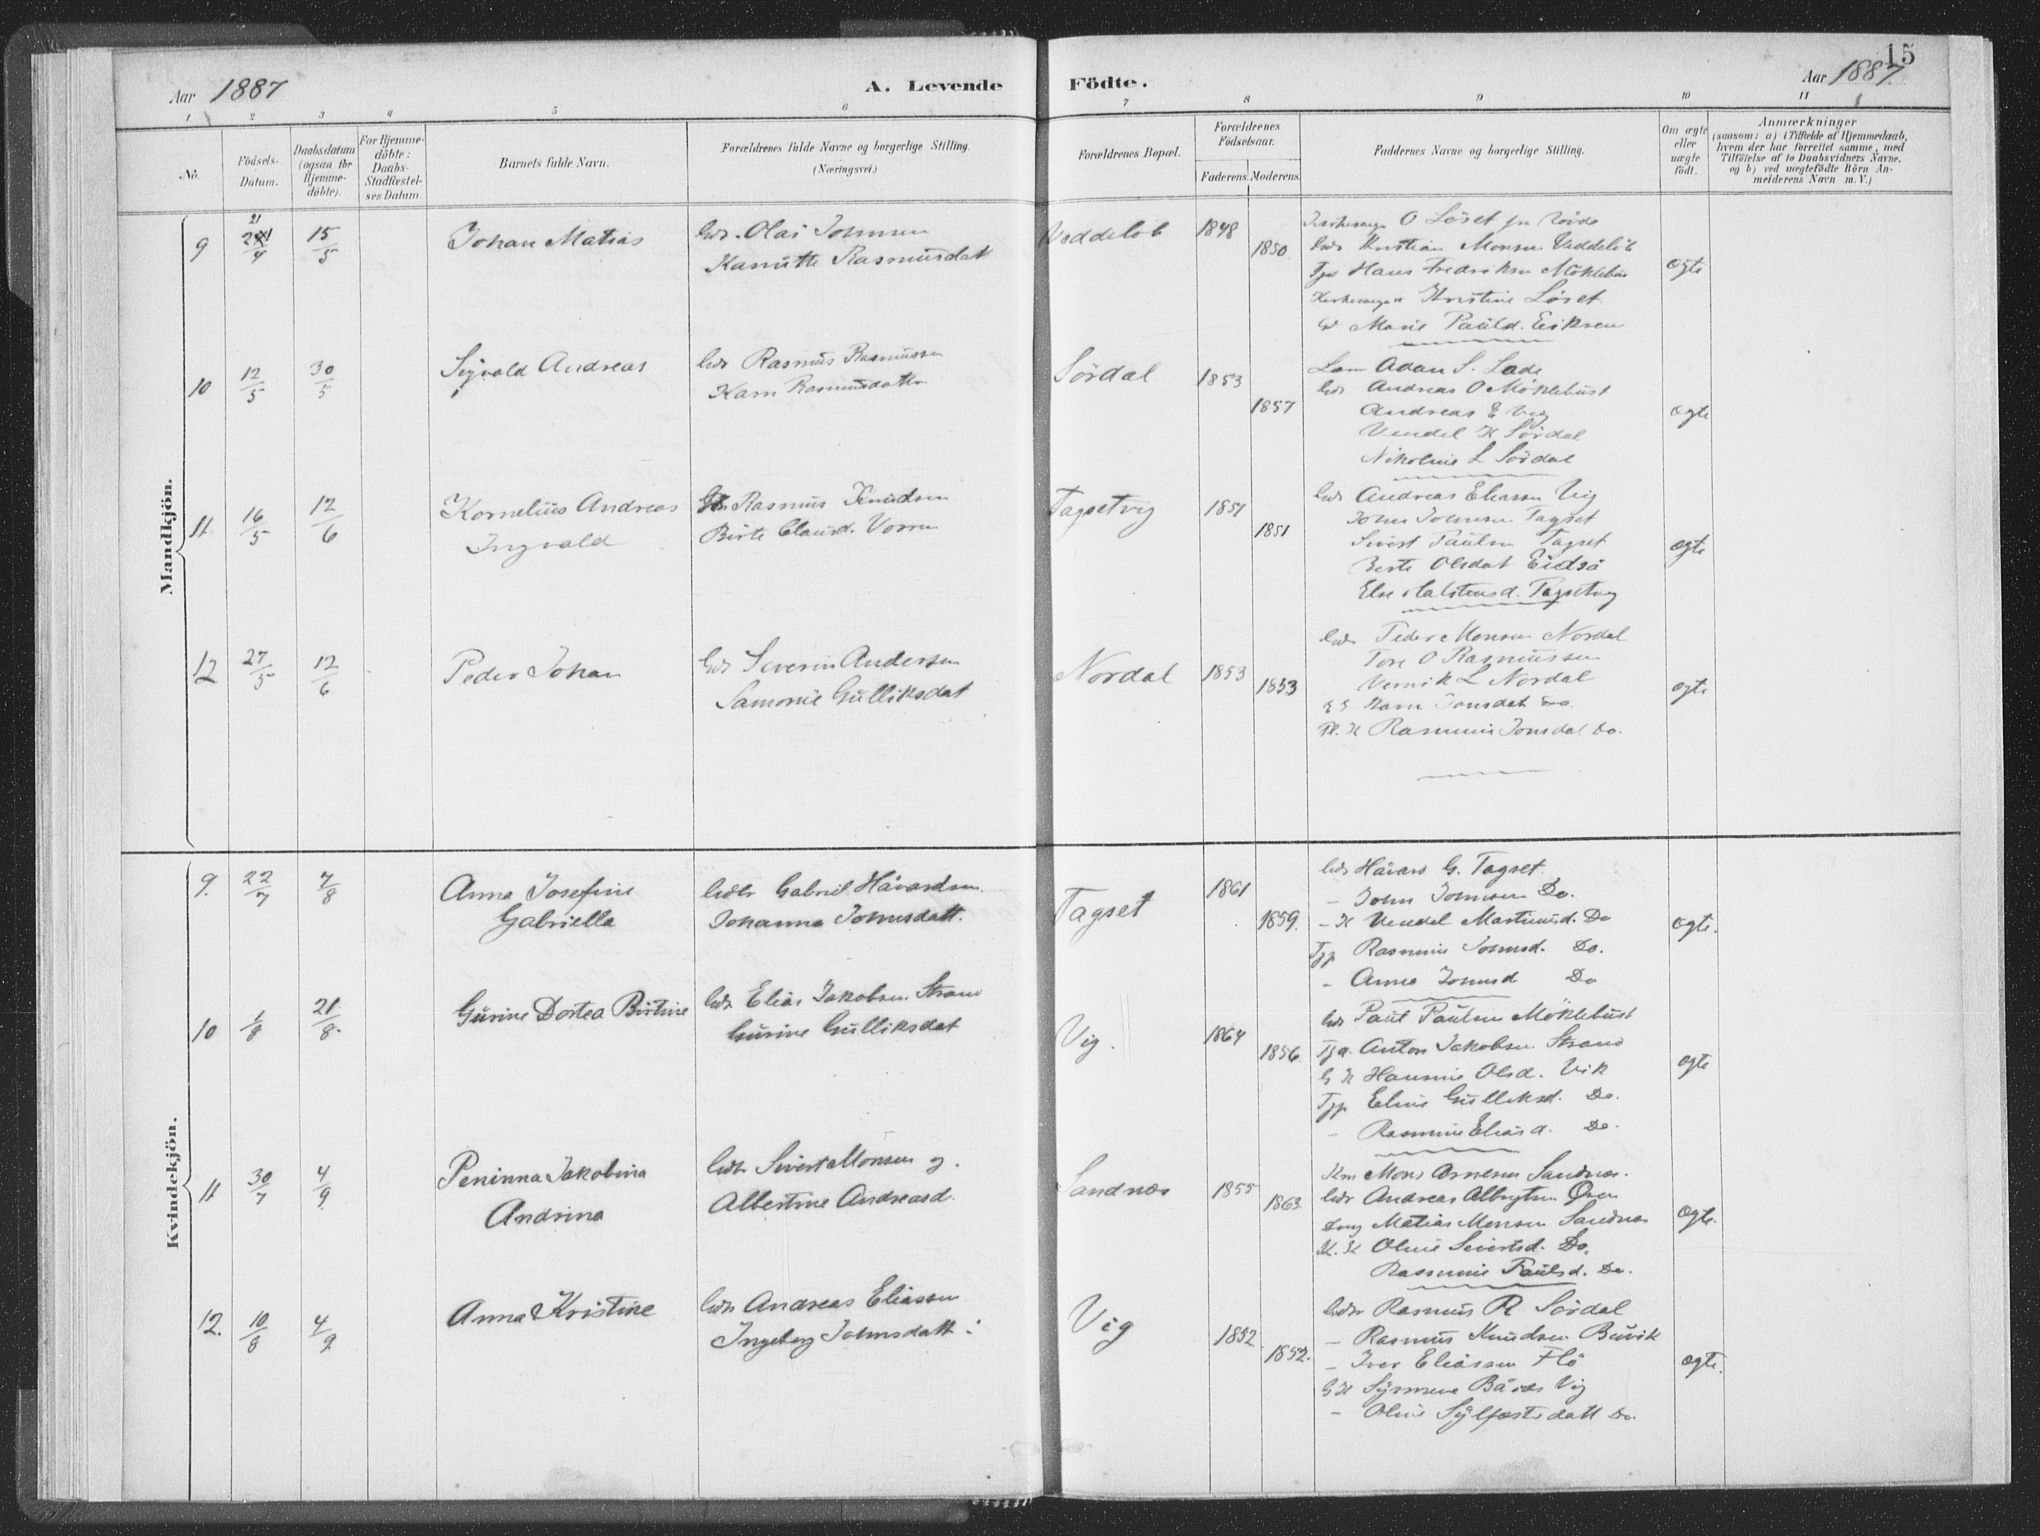 15
Aar 1887
A. Levende
Födte.
Aar 1887
1 2 3 4 5 6 7 8 9 10 11
No.
Födsels-Datum.
Daabsdatum (ogsaa for Hjemme-döbte).
For Hjemme-döbte: Daabs-Stadfæstel-ses Datum
Barnets fulde Navn.
Forældrenes fulde Navne og borgerlige Stilling.
(Næringsvei.)
Forældrenes Bopæl.
Forældrenes Födselsaar.
Faderens. Moderens.
Faddernes Navne og borgerlige Stilling.
Om ægte eller uægte födt.
Anmærkninger
(saasom: a) i Tilfælde af Hjemmedaab,
hvem der har forrettet samme, med
Tilföielse af to Daabsvidners Navne.
og b) ved uægtefödte Börn An-
meiderens Navn m. V.)
Mandkjön.
9 21/4 15/5 Johan Matias
Gdr. Olai Johnsen
Kanutte Rasmusdat
Vaddeløb 1848 1850
Kirkesanger O Løset
Gdr Kristian Monsen Vaddeløb
Hans Fredriksen Möklebust
Kirkesanger Kristine Løset
Marie Paulsd. Eriksen
ægte
10 12/5 30/5 Sigvald Andreas
Gdr Rasmus Rasmussen
Karn Rasmusdatter
Sördal 1853 1857
Lars Adan S. Lade
Gdr Andreas O Möklebust
Andreas E Vig
Vendel K Sördal
Nikoline L Sördal
ægte
11 16/5 12/6 Kornelius Andreas
Ingvald
Rasmus Knudsen
Birte Clausd. Vorren
Tagsetvig 1851 1851
Gdr Andreas Eliassen Vig
John Johnsen Tagset
Sivert Paulsen Tagset
Berte Olsdat Eidså
Else Halstensd. Tagsetvig
ægte
12 27/5 12/6 Peder Johan
Gdr Severin Andersen
Samonie Gulliksdat
Nordal 1853 1853
Gdr Peder Monsen Nordal
Tore O Rasmussen
Vernik L Nordal
Karn Jonsdat Do.
Rasmine Jonsdat Do.
ægte
Kvindekjön.
9. 22/7 7/8 Anna Josefine
Gabriella
Gdbr Gabriel Håvardsen
Johanna Johnsdatt.
Tagset 1861 1859.
Gdr Håvard G. Tagset
– John Johnsen Do.
– K Vendel Martinusd. Do
Rasmine Johnsd. Do.
– Anna Johnsd Do
ægte.
10 1/8 21/8. Gurine Dortea Birtine
Gdr Elias Jakobsen Strand
Gurine Gulliksdat
Vig. 1864 1856
Gdr Paul Paulsen Möklebust
Anton Jakobsen Strand
G K Hansine Olsd. Vik
Eline Gulleksd. Do.
– Rasmine Eliasd. Do.
ægte
11 30/7 4/9 Peninna Jakobina
Andrina
Gdbr Sivert Monsen og
Albertine Andreasd.
Sandnæs 1855 1863.
Mons Arnesen Sandnæs.
Gdr Andreas Albrigtsen Øren
Matias Monsen Sandnæs
Oline Sivertsd. Do.
Rasmine Paulsd. Do.
ægte.
12. 10/8 4/9 Anna Kristine
Gdr Andreas Eliassen
Ingeborg Johnsdatt
Vig 1852 1852.
Gdbr Rasmus R Sördal
– Rasmus Knudsen Buvik
– Iver Eliassen Flö
G K Symene Bård Vig
– Oline Sylfæstsdatt Do.
ægte.